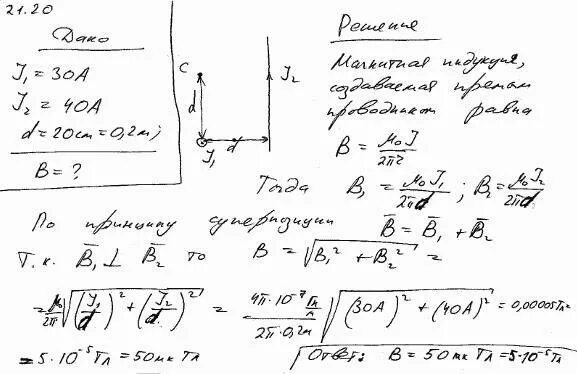 21.20
Дано
J₁ = 30A
J₂ = 40A
d = 20см = 0,2м;
B = ?
C
d
J₁
d
J₂
Решение
Магнитная индукция,
создаваемая прямым
проводником равна
B = μ₀J / 2πr
Тогда B₁ = μ₀J₁ / 2πd ; B₂ = μ₀J₂ / 2πd
По принципу суперпозиции B̄ = B̄₁ + B̄₂
Т.к. B̄₁ ⊥ B̄₂ то B = √(B₁² + B₂²) =
= μ₀/2π √((J₁/d)² + (J₂/d)²) = 4π·10⁻⁷ Гн/м / 2π·0,2м √((30A)² + (40A)²) = 0,00005Тл =
= 5·10⁻⁵Тл = 50мкТл
Ответ: B = 50мкТл = 5·10⁻⁵Тл